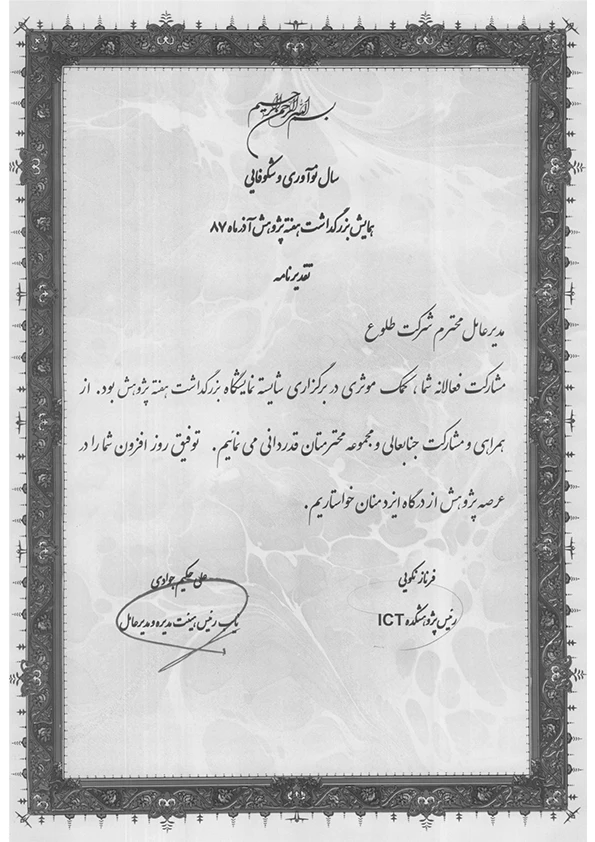 بسم الله الرحمن الرحیم
سال نوآوری و شکوفایی
همایش بزرگداشت هفته پژوهش آذر ماه ۸۷
تقدیرنامه
مدیرعامل محترم شرکت طلوع
مشارکت فعالانه شما، کمک موثری در برگزاری شایسته نمایشگاه بزرگداشت هفته پژوهش بود. از
همراهی و مشارکت جنابعالی و مجموعه محترمتان قدردانی می نمائیم. توفیق روز افزون شما را در
عرصه پژوهش از درگاه ایزد منان خواستاریم.
فرناز نکویی
رئیس پژوهشکده ICT
علی حکیم جوادی
نایب رئیس هیئت مدیره و مدیرعامل